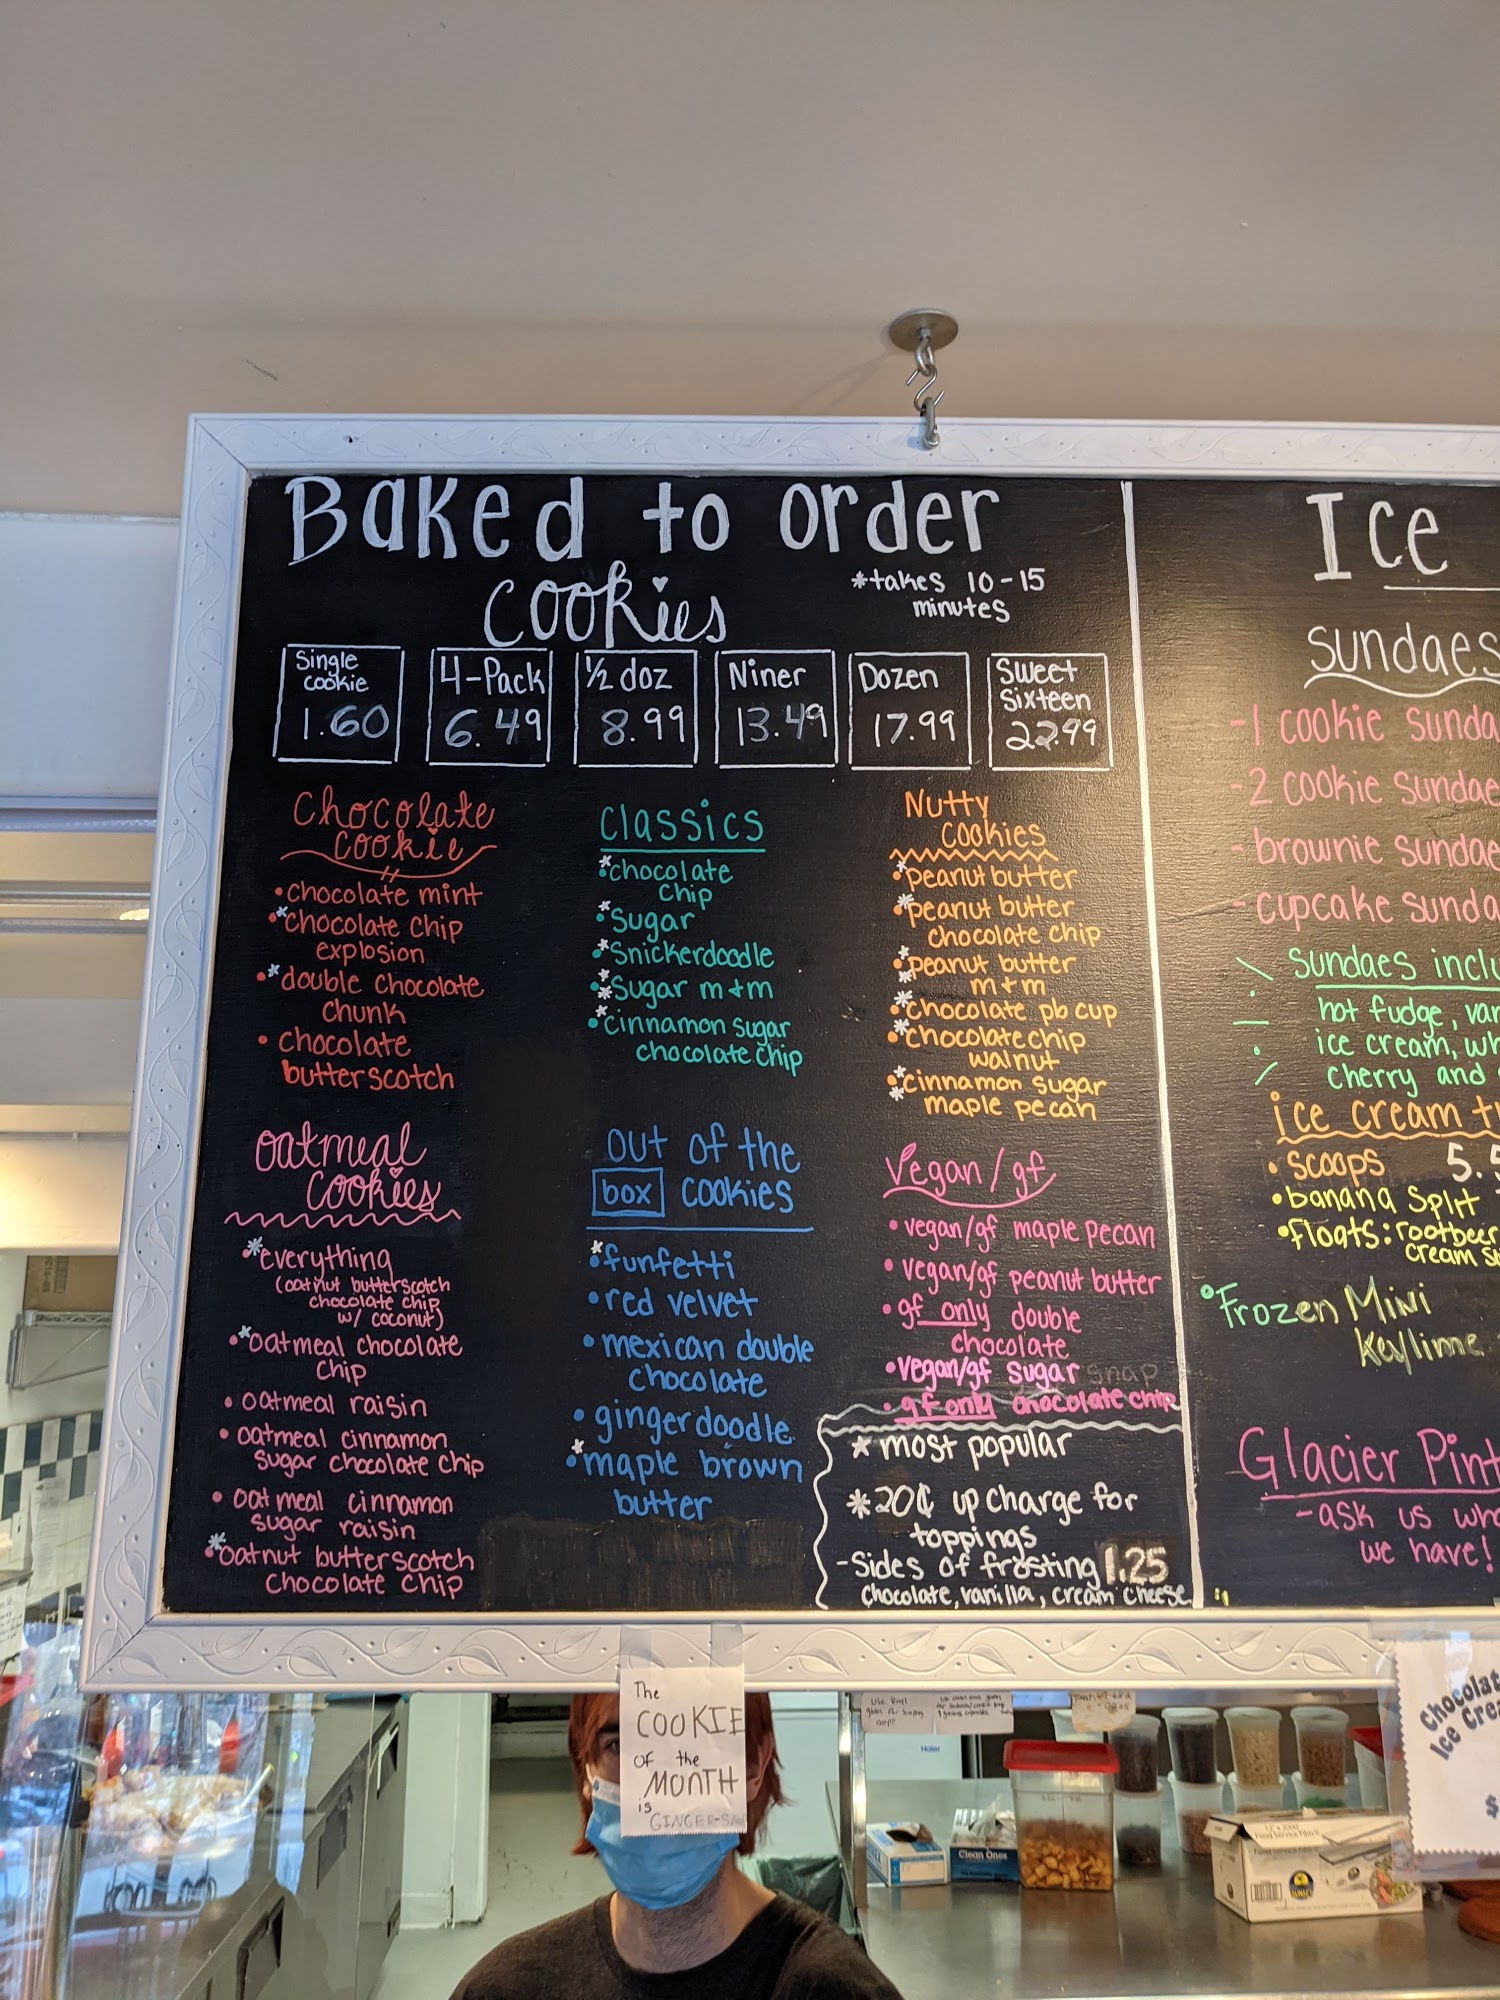 Baked to order
cookies
*takes 10-15
minutes
Single
cookie
1.60
4-Pack
6.49
1/2 doz
8.99
Niner
13.49
Dozen
17.99
Sweet
Sixteen
22.99
Chocolate
Cookie
•chocolate mint
•*chocolate chip
explosion
•*double chocolate
chunk
• chocolate
butterscotch
Classics
*•chocolate
chip
*•Sugar
*•Snickerdoodle
*•Sugar m+m
*•cinnamon sugar
chocolate chip
Nutty
Cookies
*•peanut butter
*•peanut butter
chocolate chip
*•peanut butter
m+m
*•chocolate pb cup
*•chocolate chip
walnut
*•cinnamon sugar
maple pecan
oatmeal
cookies
*•everything
(oatnut butterscotch
chocolate chip
w/ coconut)
•*oatmeal chocolate
chip
• oatmeal raisin
• oatmeal cinnamon
sugar chocolate chip
• oatmeal cinnamon
sugar raisin
*•oatnut butterscotch
chocolate chip
out of the
box cookies
*•funfetti
•red velvet
•mexican double
chocolate
•gingerdoodle
*•maple brown
butter
Vegan/gf
•vegan/gf maple pecan
•vegan/gf peanut butter
•gf only double
chocolate
•vegan/gf sugar snap
•gf only chocolate chip
* most popular
*20¢ up charge for
toppings
-Sides of frosting 1.25
chocolate, vanilla, cream cheese
Ice
sundaes
-1 cookie
-2 cookie sundae
-brownie sundae
-cupcake
sundaes
hot fudge,
ice cream,
cherry and
ice cream
• scoops
•banana split
•floats: rootbeer
cream
•Frozen Mini
Keylime
Glacier
-ask us
we have!
The
COOKIE
OF the
MONTH
is
Clean Ones
Haier
Chocolate
Ice
$